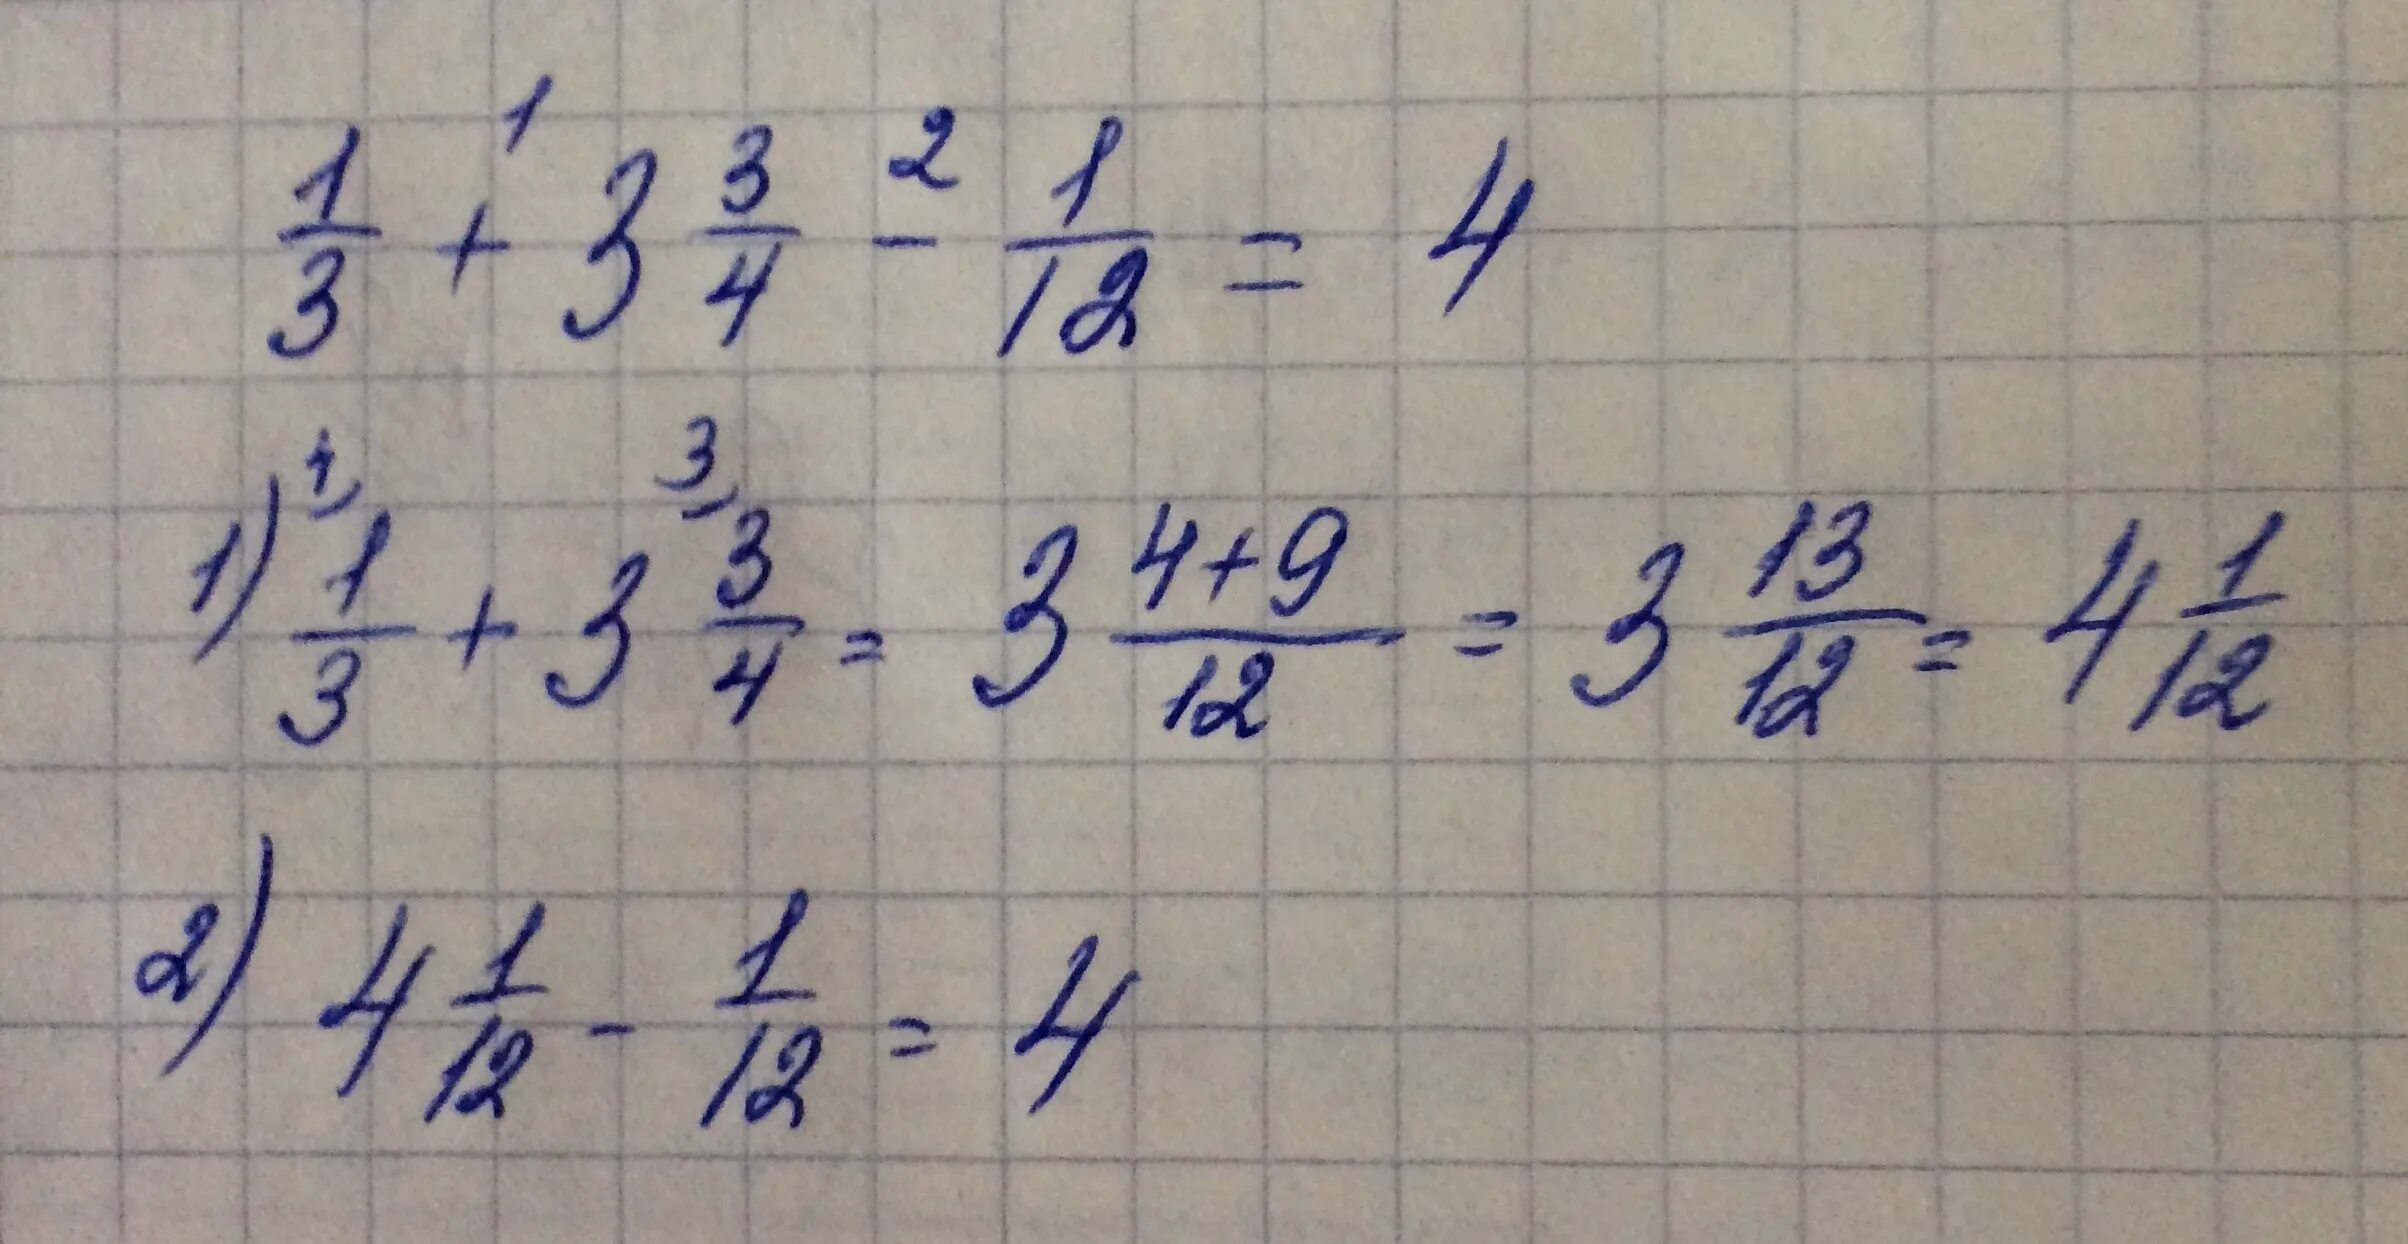 1/3 +¹ 3 3/4 -² 1/12 = 4
1) ¹⁾1/3 + 3 ³⁾3/4 = 3 (4+9)/12 = 3 13/12 = 4 1/12
2) 4 1/12 - 1/12 = 4